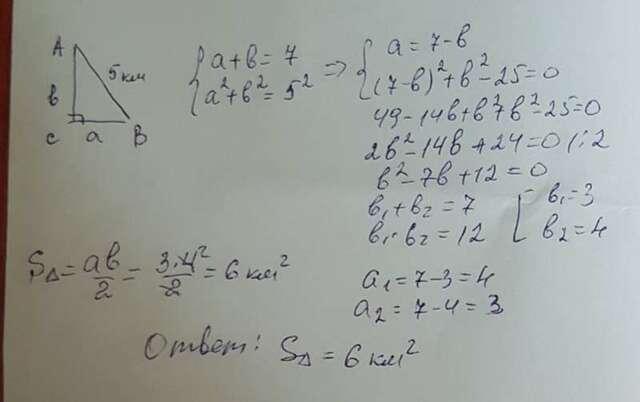 A
5 км
в
C a B
{ a+в=7 => { a=7-в
a²+в²=5² (7-в)²+в²-25=0
49-14в+в²+в²-25=0
2в²-14в+24=0 /:2
в²-7в+12=0
в₁+в₂=7 [ в₁=3
в₁·в₂=12 в₂=4
S△=aв/2=3·4²/2=6 км²
a₁=7-3=4
a₂=7-4=3
Ответ: S△=6 км²